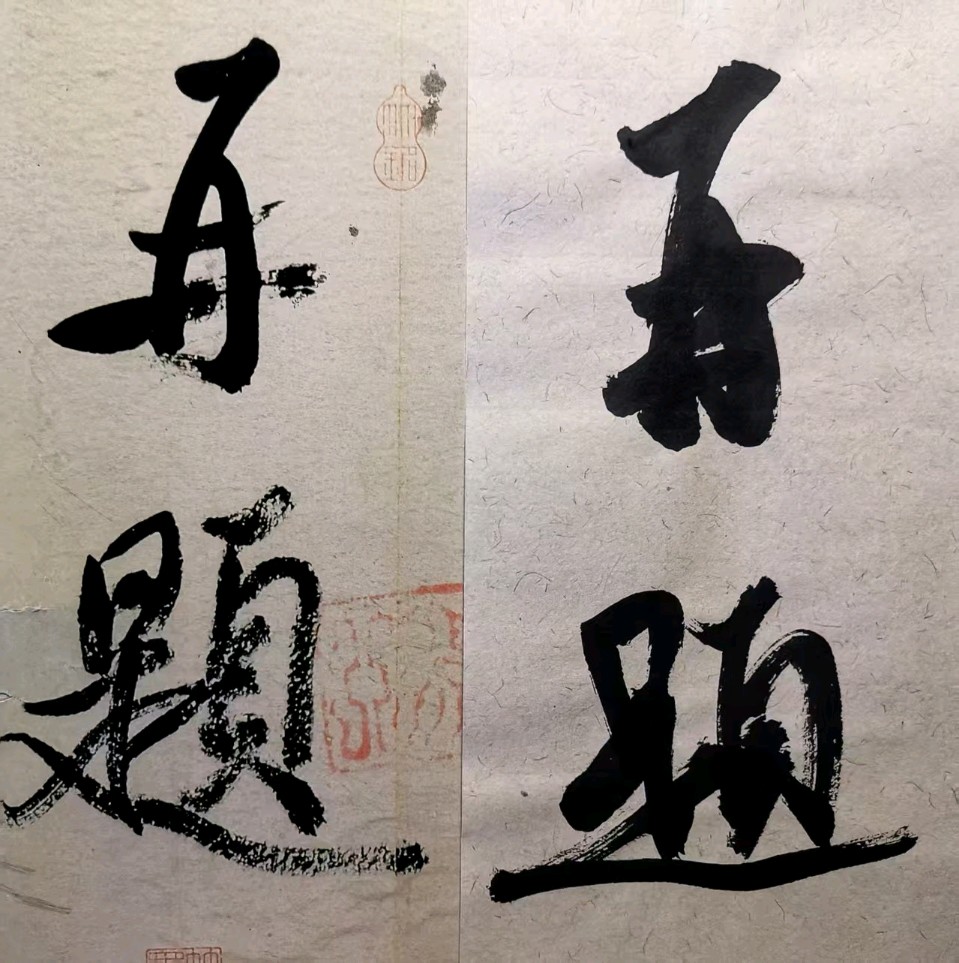 再題
再題